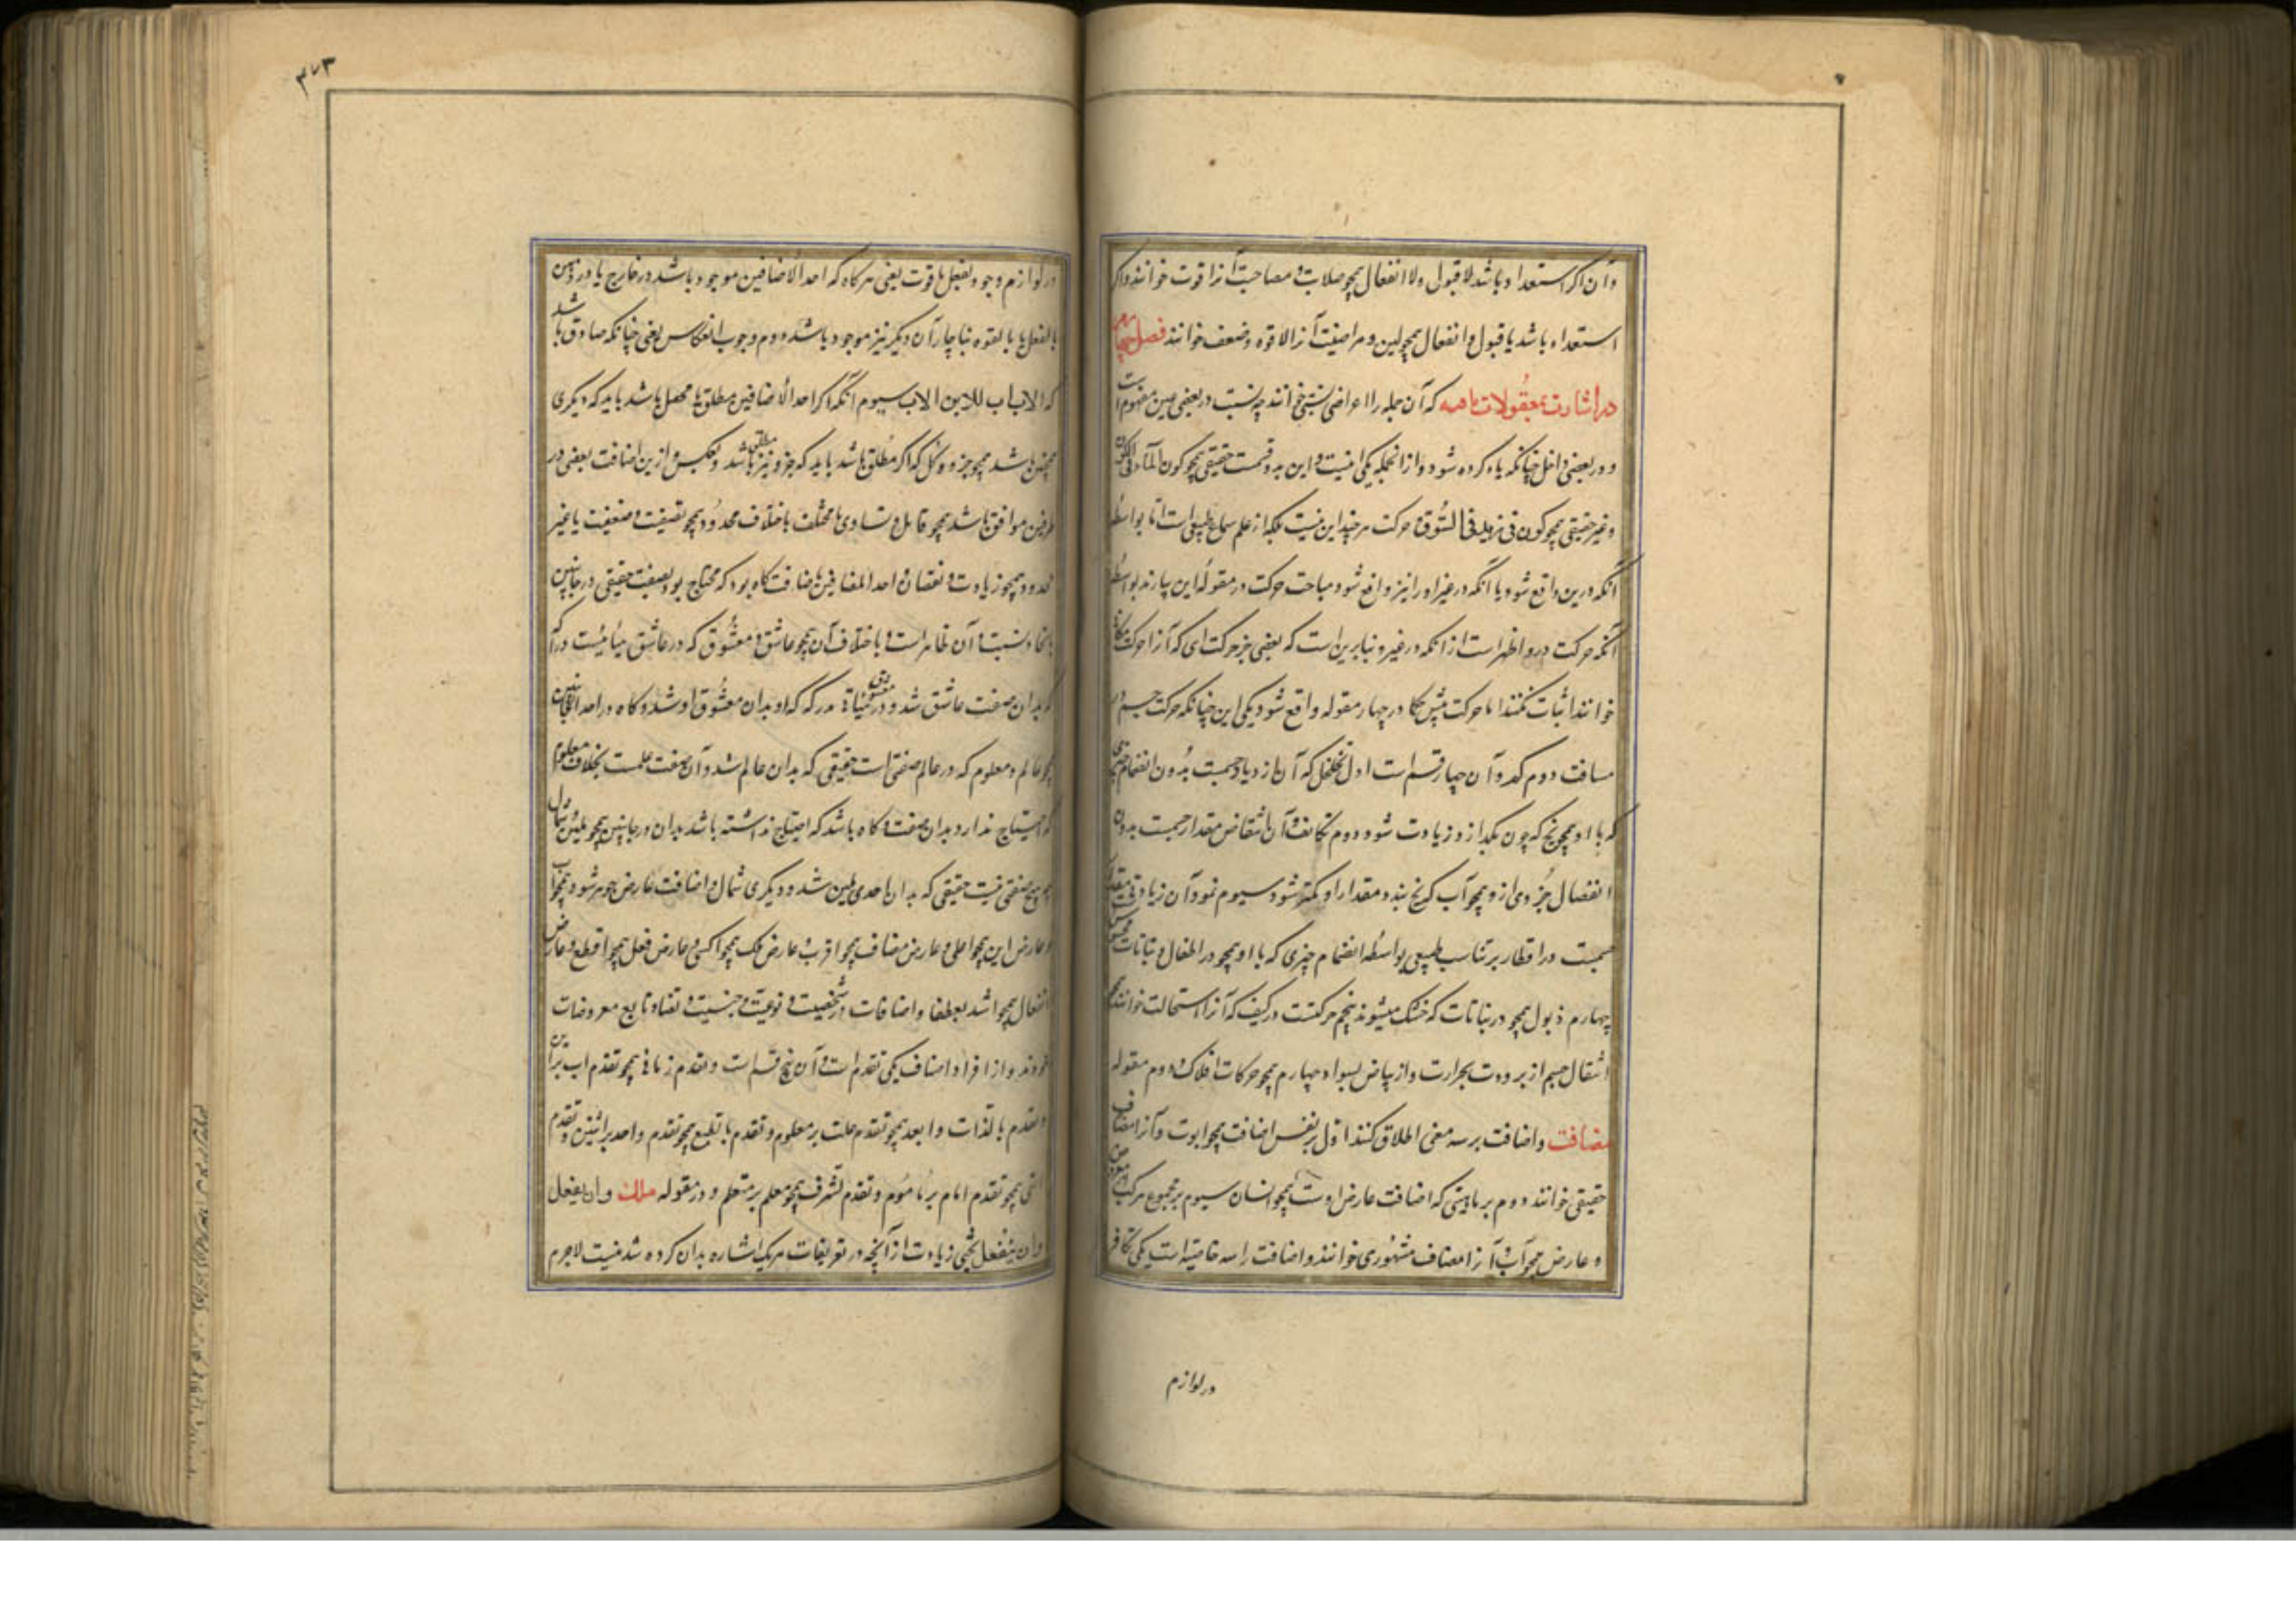 وآن اگر استعداد باشد لا قبول ولا انفعال همچو صلابت و مصاحبت آنرا قوت خوانند واگر
استعداد باشد یا قبول و انفعال همچو لین و مراضیت آنرا لا قوه و ضعف خوانند فصل چهارم
در اشارت بمقولات باقیه که آن جمله را اعراض نسبتی خوانند چه نسبت در بعضی عین مفهوم است
و در بعضی داخل چنانکه یاد کرده شود و از آنجمله یکی اینست و این بدو قسمت حقیقی همچو کون الماء فی الکوز
و غیر حقیقی همچو کون فی زید فی السوق و حرکت هر چند این نیست بلکه از علم سماع طبیعی است اما بواسطه
آنکه درین واقع شود با آنکه در غیر او را نیز واقع شود مباحث حرکت در مقوله این یارند بواسطه
آنکه حرکت درو اظهر است از آنکه در غیر و بنا برین است که بعضی جز حرکت ای که آنرا حرکت مکانی
خوانند اثبات نکنند اما حرکت پیش حکما در چهار مقوله واقع شود یکی این چنانکه حرکت جسم در
مسافت دوم کم و آن چهار قسم است اول تخلخل که آن ازدیاد جسمیت بدون انضمام چیزی
که با او همچو یخ که چون بگدازد و زیادت شود دوم تکاثف و آن انتقاض مقدار جسمیت بدون
انفصال جزوی ازو همچو آب که یخ بندد مقدار او کمتر شود سیوم نمو و آن زیادتی مقدار
جسمیت در اقطار بر تناسب طبیعی بواسطه انضمام چیزی که با او همچو در اطفال و نباتات
چهارم ذبول همچو در نباتات که خشک میشوند پنجم حرکتست در کیف که آنرا استحالت خوانند همچو
انتقال جسم از برودت بحرارت و از بیاض بسواد چهارم همچو حرکات افلاک دوم مقوله
مضافت و اضافت بر سه معنی اطلاق کنند اول بر نفس اضافت همچو ابوت و آنرا مضاف
حقیقی خوانند دوم بر ماهیتی که اضافت عارض اوست همچو انسان سیوم بر مجموع مرکب از معروض
و عارض همچو آب و آنرا مضاف مشهوری خوانند و اضافت را سه خاصیة است یکی تکافؤ
در لوازم
۳۷۳
در لوازم وجود بفعل یا قوت یعنی هر گاه که احد الاضافین موجود باشد در خارج یا در ذهن
بالفعل یا بالقوه بناچار آن دیگر نیز موجود باشد دوم وجوب انعکاس یعنی چنانکه صادق باشد
که الاب اب للابن الاب سیوم آنکه اگر احد الاضافین مطلق یا محصل باشد باید که دیگری
همچنین باشد همچو جزو و کل که اگر مطلق باشد باید که جزو نیز مطلق باشد و بعکس و ازین اضافت بعضی در
طرفین موافق باشد همچو تماثل و تساوی یا مختلف باختلاف محدود همچو نصفیت و ضعفیت یا غیر
محدود همچو زیادت و نقصان احد المضافین مضافت گاه بود که محتاج بود بصفت حقیقی در جانبین
باتحاد نسبت و آن ظاهر است و باختلاف آن همچو عاشق و معشوق که در عاشق هیأتیست درا که
که بدان صفت عاشق شد و در معشوق هیأة مدرکه که او بدان معشوق او شد و گاه در احد الجانبین
همچو عالم و معلوم که در عالم صفتی است حقیقی که بدان عالم شد و آن صفت علمست بخلاف معلوم
که احتیاج ندارد بدان صفت و گاه باشد که احتیاج نداشته باشد بدان در جانبین همچو یمین و شمال
هیچ صفتی نیست حقیقی که بدان احدی یمین شد و دیگری شمال و اضافت عارض جوهر شود همچو اب
و عارض این همچو اعلی و عارض مضاف همچو اقرب و عارض ملک همچو اکسی و عارض فعل همچو اقطع و عارض
انفعال همچو اشد بعطفا و اضافات در شخصیت و نوعیت و جنسیت و تضاد تابع معروضات
خودند و از افراد اضافت یکی تقدم است و آن پنج قسم است و تقدم زمانی همچو تقدم اب بر ابن
و تقدم بالذات و ابعد همچو تقدم علت بر معلوم و تقدم بالطبع همچو تقدم واحد بر اثنین و تقدم
رتبی همچو تقدم امام بر مأموم و تقدم بشرف همچو معلم بر متعلم و در مقوله ملک و ان یفعل
و ان ینفعل بحثی زیادت از آنچه در تعریفات هر یک اشاره بدان کرده شد نیست لاجرم